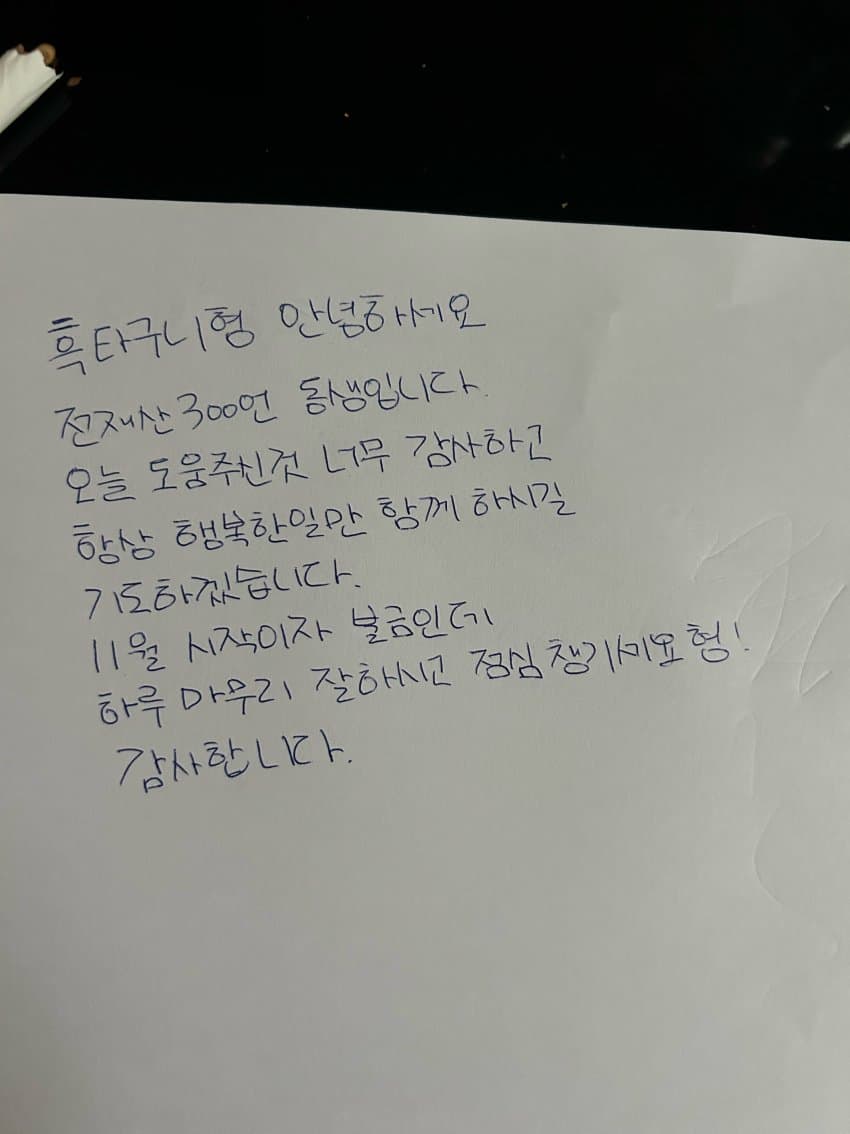 흑타구니형 안녕하세요
전재산 300언 동생입니다.
오늘 도움주신것 너무 감사하고
항상 행복한일만 함께 하시길
기도하겠습니다.
11월 시작이자 불금인데
하루 마무리 잘하시고 점심 챙기세요 형!
감사합니다.